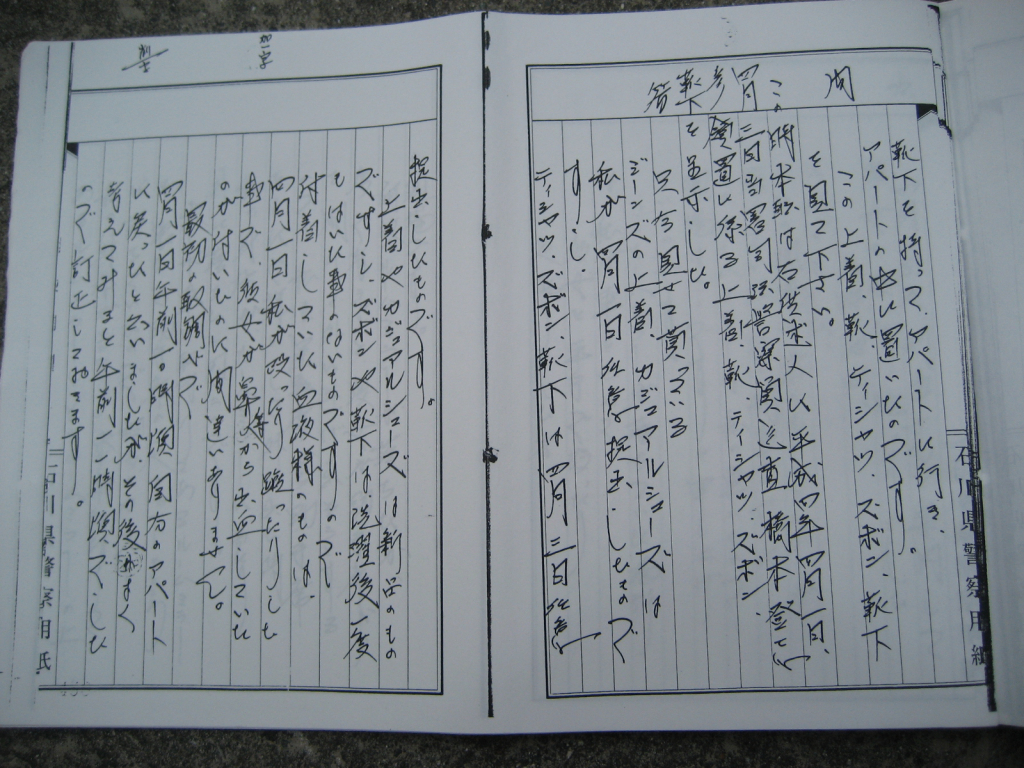 靴下を持って、アパートに行き、
アパートの中に置いたのです。
問 この上着、靴、ティシャツ、ズボン、靴下
を見て下さい。
この時本職は右供述人に平成四年四月一日、
四月三日当署司法
領置に係る上着、靴、ティシャツ、ズボン、
靴下を呈示した。
答 只今見せて貰っている
ジーンズの上着、カジュアルシューズは
私が四月一日任意提出したもので
すし、
ティシャツ、ズボン、靴下は四月三日任意
石川県警察用紙
提出したものです。
上着やカジュアルシューズは新品のもの
ですし、ズボンや靴下は洗濯後一度
もはいた事のないものですので
付着していた血液様のものは、
四月一日私が殴ったり蹴ったりした
事で、彼女が鼻等から出血していた
のが付いたのに間違いありません。
最初の取調べで
四月一日午前一〇時頃関方のアパート
に戻ったと云いましたが、その後よく
考えてみますと午前一一時頃でした
ので訂正しておきます。
石川県警察用紙